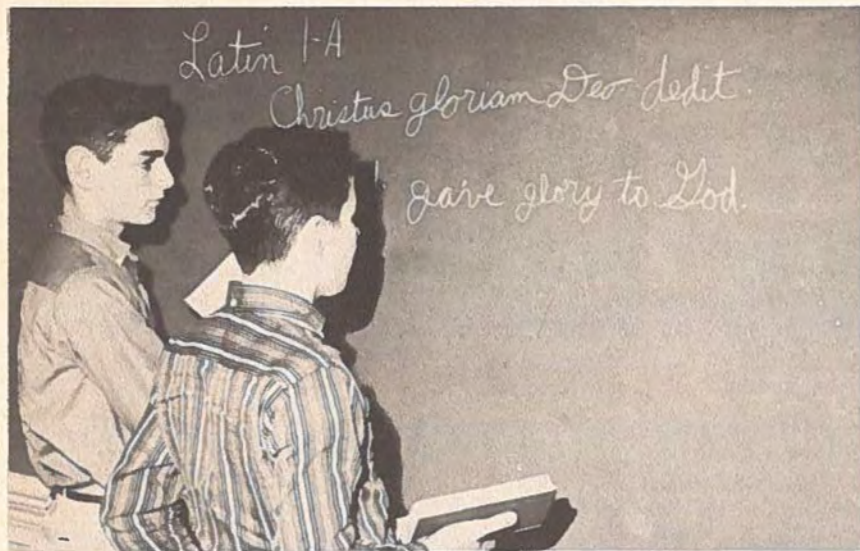 Latin 1-A
Christus gloriam Deo dedit.
gave glory to God.